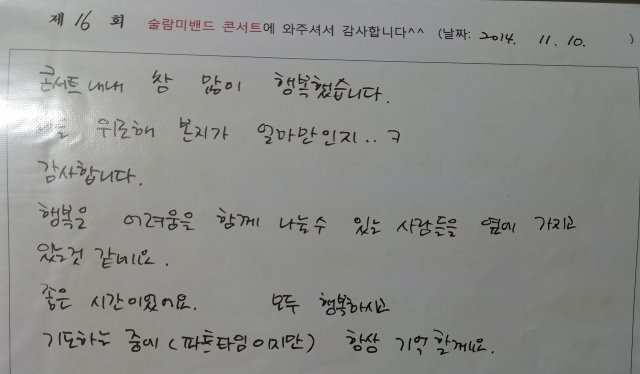 제 16 회 슬람미밴드 콘서트에 와주셔서 감사합니다^^ (날짜: 2014. 11. 10. )
콘서트 내내 참 많이 행복했습니다.
위로해 본지가 얼마만인지..ㅋ
감사합니다.
행복을 어려움을 함께 나눌수 있는 사람들을 옆에 가지고
있는것 같네요.
좋은 시간이었어요. 모두 행복하시고
기도하는 중에 (파트타임이지만) 항상 기억할께요.